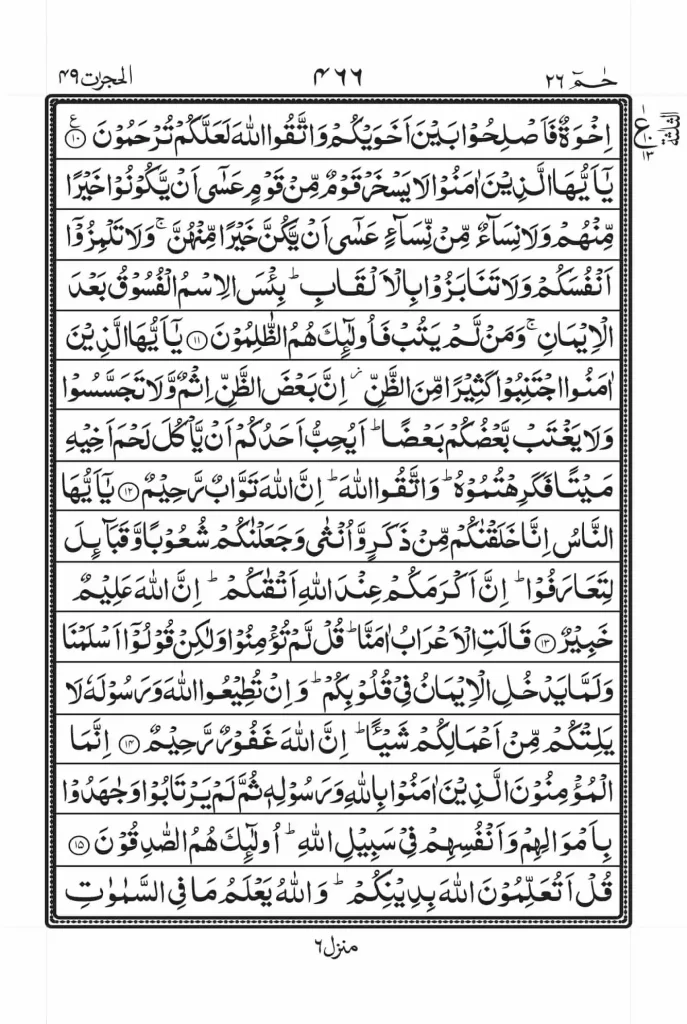 حٰمٓ ٢٦ ۴٦٦ الحجرٰت ۴٩
اِخۡوَةٌ فَاَصۡلِحُوۡا بَيۡنَ اَخَوَيۡكُمۡ وَاتَّقُوا اللّٰهَ لَعَلَّكُمۡ تُرۡحَمُوۡنَ ﴿١٠﴾ ع
يٰۤاَيُّهَا الَّذِيۡنَ اٰمَنُوۡا لَا يَسۡخَرۡ قَوۡمٌ مِّنۡ قَوۡمٍ عَسٰٓى اَنۡ يَّكُوۡنُوۡا خَيۡرًا
مِّنۡهُمۡ وَلَا نِسَآءٌ مِّنۡ نِّسَآءٍ عَسٰٓى اَنۡ يَّكُنَّ خَيۡرًا مِّنۡهُنَّ‌ۚ وَلَا تَلۡمِزُوۡۤا
اَنۡفُسَكُمۡ وَلَا تَنَابَزُوۡا بِالۡاَلۡقَابِ‌ؕ بِئۡسَ الِاسۡمُ الۡفُسُوۡقُ بَعۡدَ
الۡاِيۡمَانِ‌ۚ وَمَنۡ لَّمۡ يَتُبۡ فَاُولٰٓٮِٕكَ هُمُ الظّٰلِمُوۡنَ ﴿١١﴾ يٰۤاَيُّهَا الَّذِيۡنَ
اٰمَنُوا اجۡتَنِبُوۡا كَثِيۡرًا مِّنَ الظَّنِّ اِنَّ بَعۡضَ الظَّنِّ اِثۡمٌ وَّلَا تَجَسَّسُوۡا
وَلَا يَغۡتَبْ بَّعۡضُكُمۡ بَعۡضًا‌ؕ اَيُحِبُّ اَحَدُكُمۡ اَنۡ يَّاۡكُلَ لَحۡمَ اَخِيۡهِ
مَيۡتًا فَكَرِهۡتُمُوۡهُ‌ؕ وَاتَّقُوا اللّٰهَ‌ؕ اِنَّ اللّٰهَ تَوَّابٌ رَّحِيۡمٌ ﴿١٢﴾ يٰۤاَيُّهَا
النَّاسُ اِنَّا خَلَقۡنٰكُمۡ مِّنۡ ذَكَرٍ وَّاُنۡثٰى وَجَعَلۡنٰكُمۡ شُعُوۡبًا وَّقَبَآٮِٕلَ
لِتَعَارَفُوۡا‌ؕ اِنَّ اَكۡرَمَكُمۡ عِنۡدَ اللّٰهِ اَتۡقٰٮكُمۡ‌ؕ اِنَّ اللّٰهَ عَلِيۡمٌ
خَبِيۡرٌ ﴿١٣﴾ قَالَتِ الۡاَعۡرَابُ اٰمَنَّا‌ؕ قُلْ لَّمۡ تُؤۡمِنُوۡا وَلٰـكِنۡ قُوۡلُوۡۤا اَسۡلَمۡنَا
وَلَمَّا يَدۡخُلِ الۡاِيۡمَانُ فِىۡ قُلُوۡبِكُمۡ‌ؕ وَاِنۡ تُطِيۡعُوا اللّٰهَ وَرَسُوۡلَهٗ لَا
يَلِتۡكُمۡ مِّنۡ اَعۡمَالِكُمۡ شَيۡـًٔـا‌ؕ اِنَّ اللّٰهَ غَفُوۡرٌ رَّحِيۡمٌ ﴿١۴﴾ اِنَّمَا
الۡمُؤۡمِنُوۡنَ الَّذِيۡنَ اٰمَنُوۡا بِاللّٰهِ وَرَسُوۡلِهٖ ثُمَّ لَمۡ يَرۡتَابُوۡا وَجٰهَدُوۡا
بِاَمۡوَالِهِمۡ وَاَنۡفُسِهِمۡ فِىۡ سَبِيۡلِ اللّٰهِ‌ؕ اُولٰٓٮِٕكَ هُمُ الصّٰدِقُوۡنَ ﴿١٥﴾
قُلۡ اَتُعَلِّمُوۡنَ اللّٰهَ بِدِيۡنِكُمۡؕ وَاللّٰهُ يَعۡلَمُ مَا فِى السَّمٰوٰتِ
منزل ٦
الثلثة
ع ١٠ ١٣